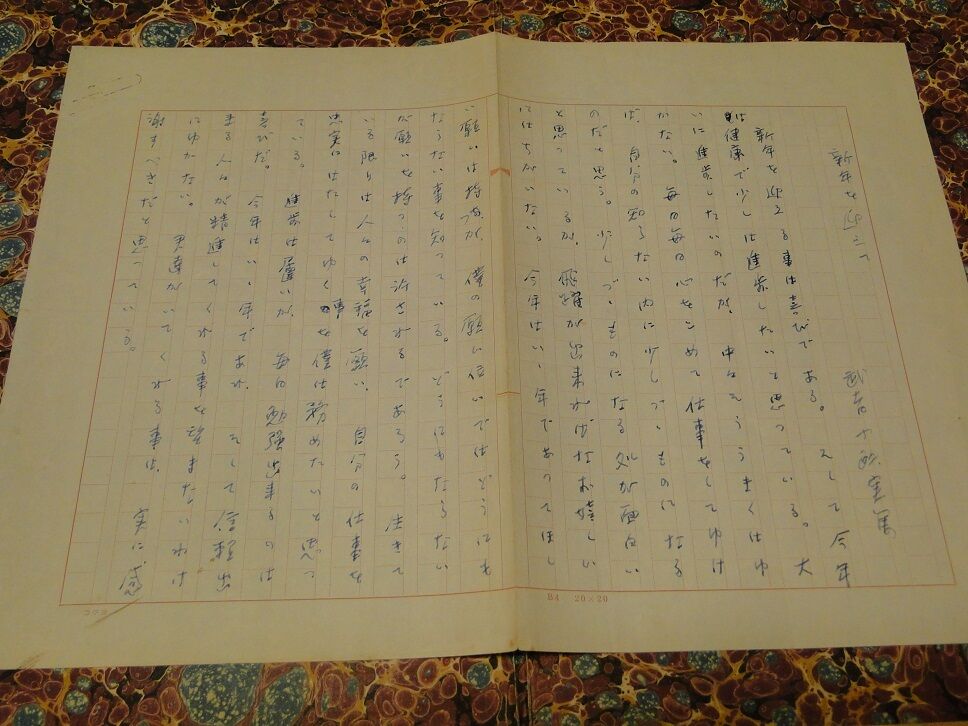 新年を迎えて
武者小路実篤
新年を迎える事は喜びである。そして今年
は健康で少しは進歩したいと思っている。大
いに進歩したいのだが、中々そううまくはゆ
かない。毎日毎日心をこめて仕事をしてゆけ
ば、自分の知らない内に少しづゝものになる
のだと思う。少しづゝものになる処が面白い
と思っているが、飛躍が出来ればなお嬉しい
にはちがいない。今年はいゝ年であってほし
い願いは持つが、僕の願い位いではどうにも
ならない事を知っている。どうにもならない
が願いを持つのは許されるであろう。生きて
いる限りは人々の幸福を願い、自分の仕事を
忠実にはたしてゆく事を僕は務めたいと思っ
ている。進歩は遅いが、毎日勉強出来るのは
喜びだ。今年はいゝ年であれ、そして信頼出
来る人々が精進してくれる事を望まないわけ
にはゆかない。男達がいてくれる事は、実に感
謝すべきだと思っている。
B4 20×20
コクヨ